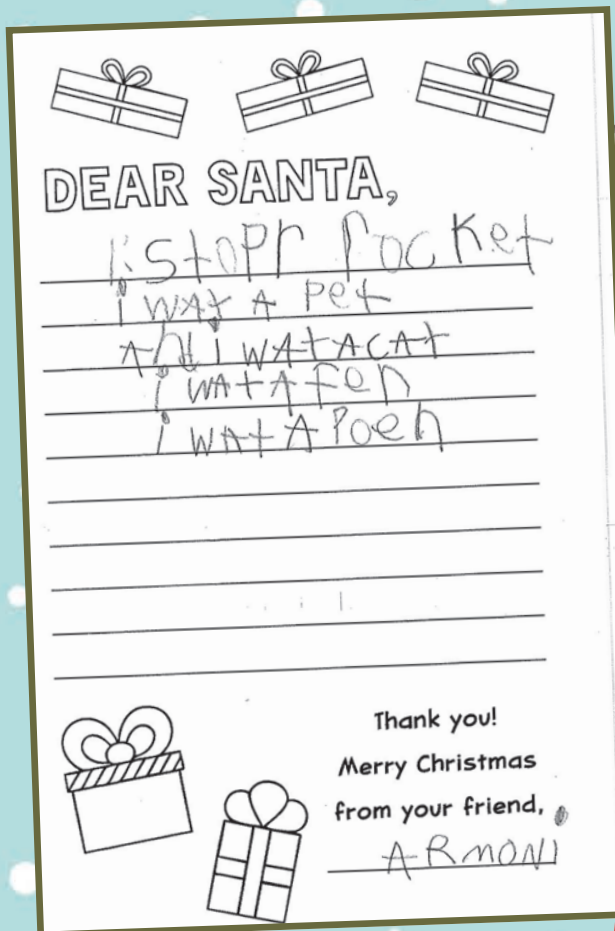 DEAR SANTA,
i stopr rocket
i wAt A Pet
And i wAtAcAt
i wAt A fen
i wAt A Poen
Thank you!
Merry Christmas
from your friend,
ARmONi